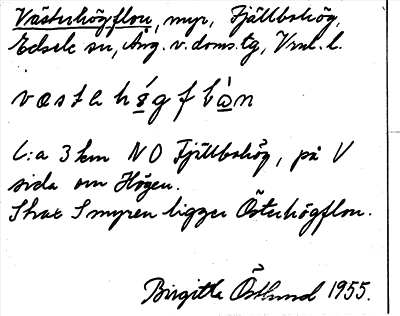 Västerhögflon, myr, Fjällbohög,
Edsele sn, Ång. v. doms. tg, Vnl. l.
västa hǿgflòn
C:a 3 km NO Fjällbohög, på V
sida om Högen.
Strax S myren ligger Österhögflon.
Birgitta Östlund 1955.